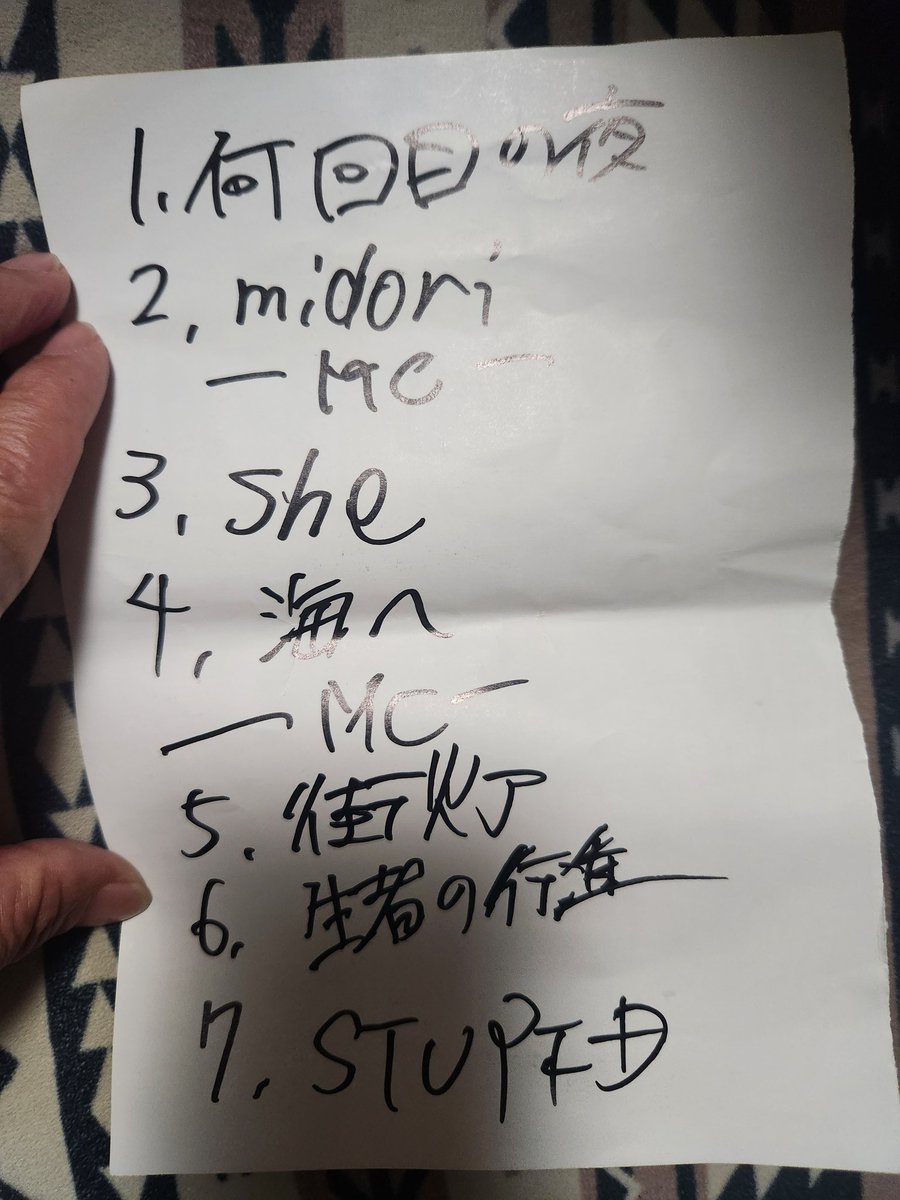 1. 何回目の夜
2. midori
ー MC ー
3. She
4. 海へ
ー MC ー
5. 街灯
6. 生者の行進
7. STUPID